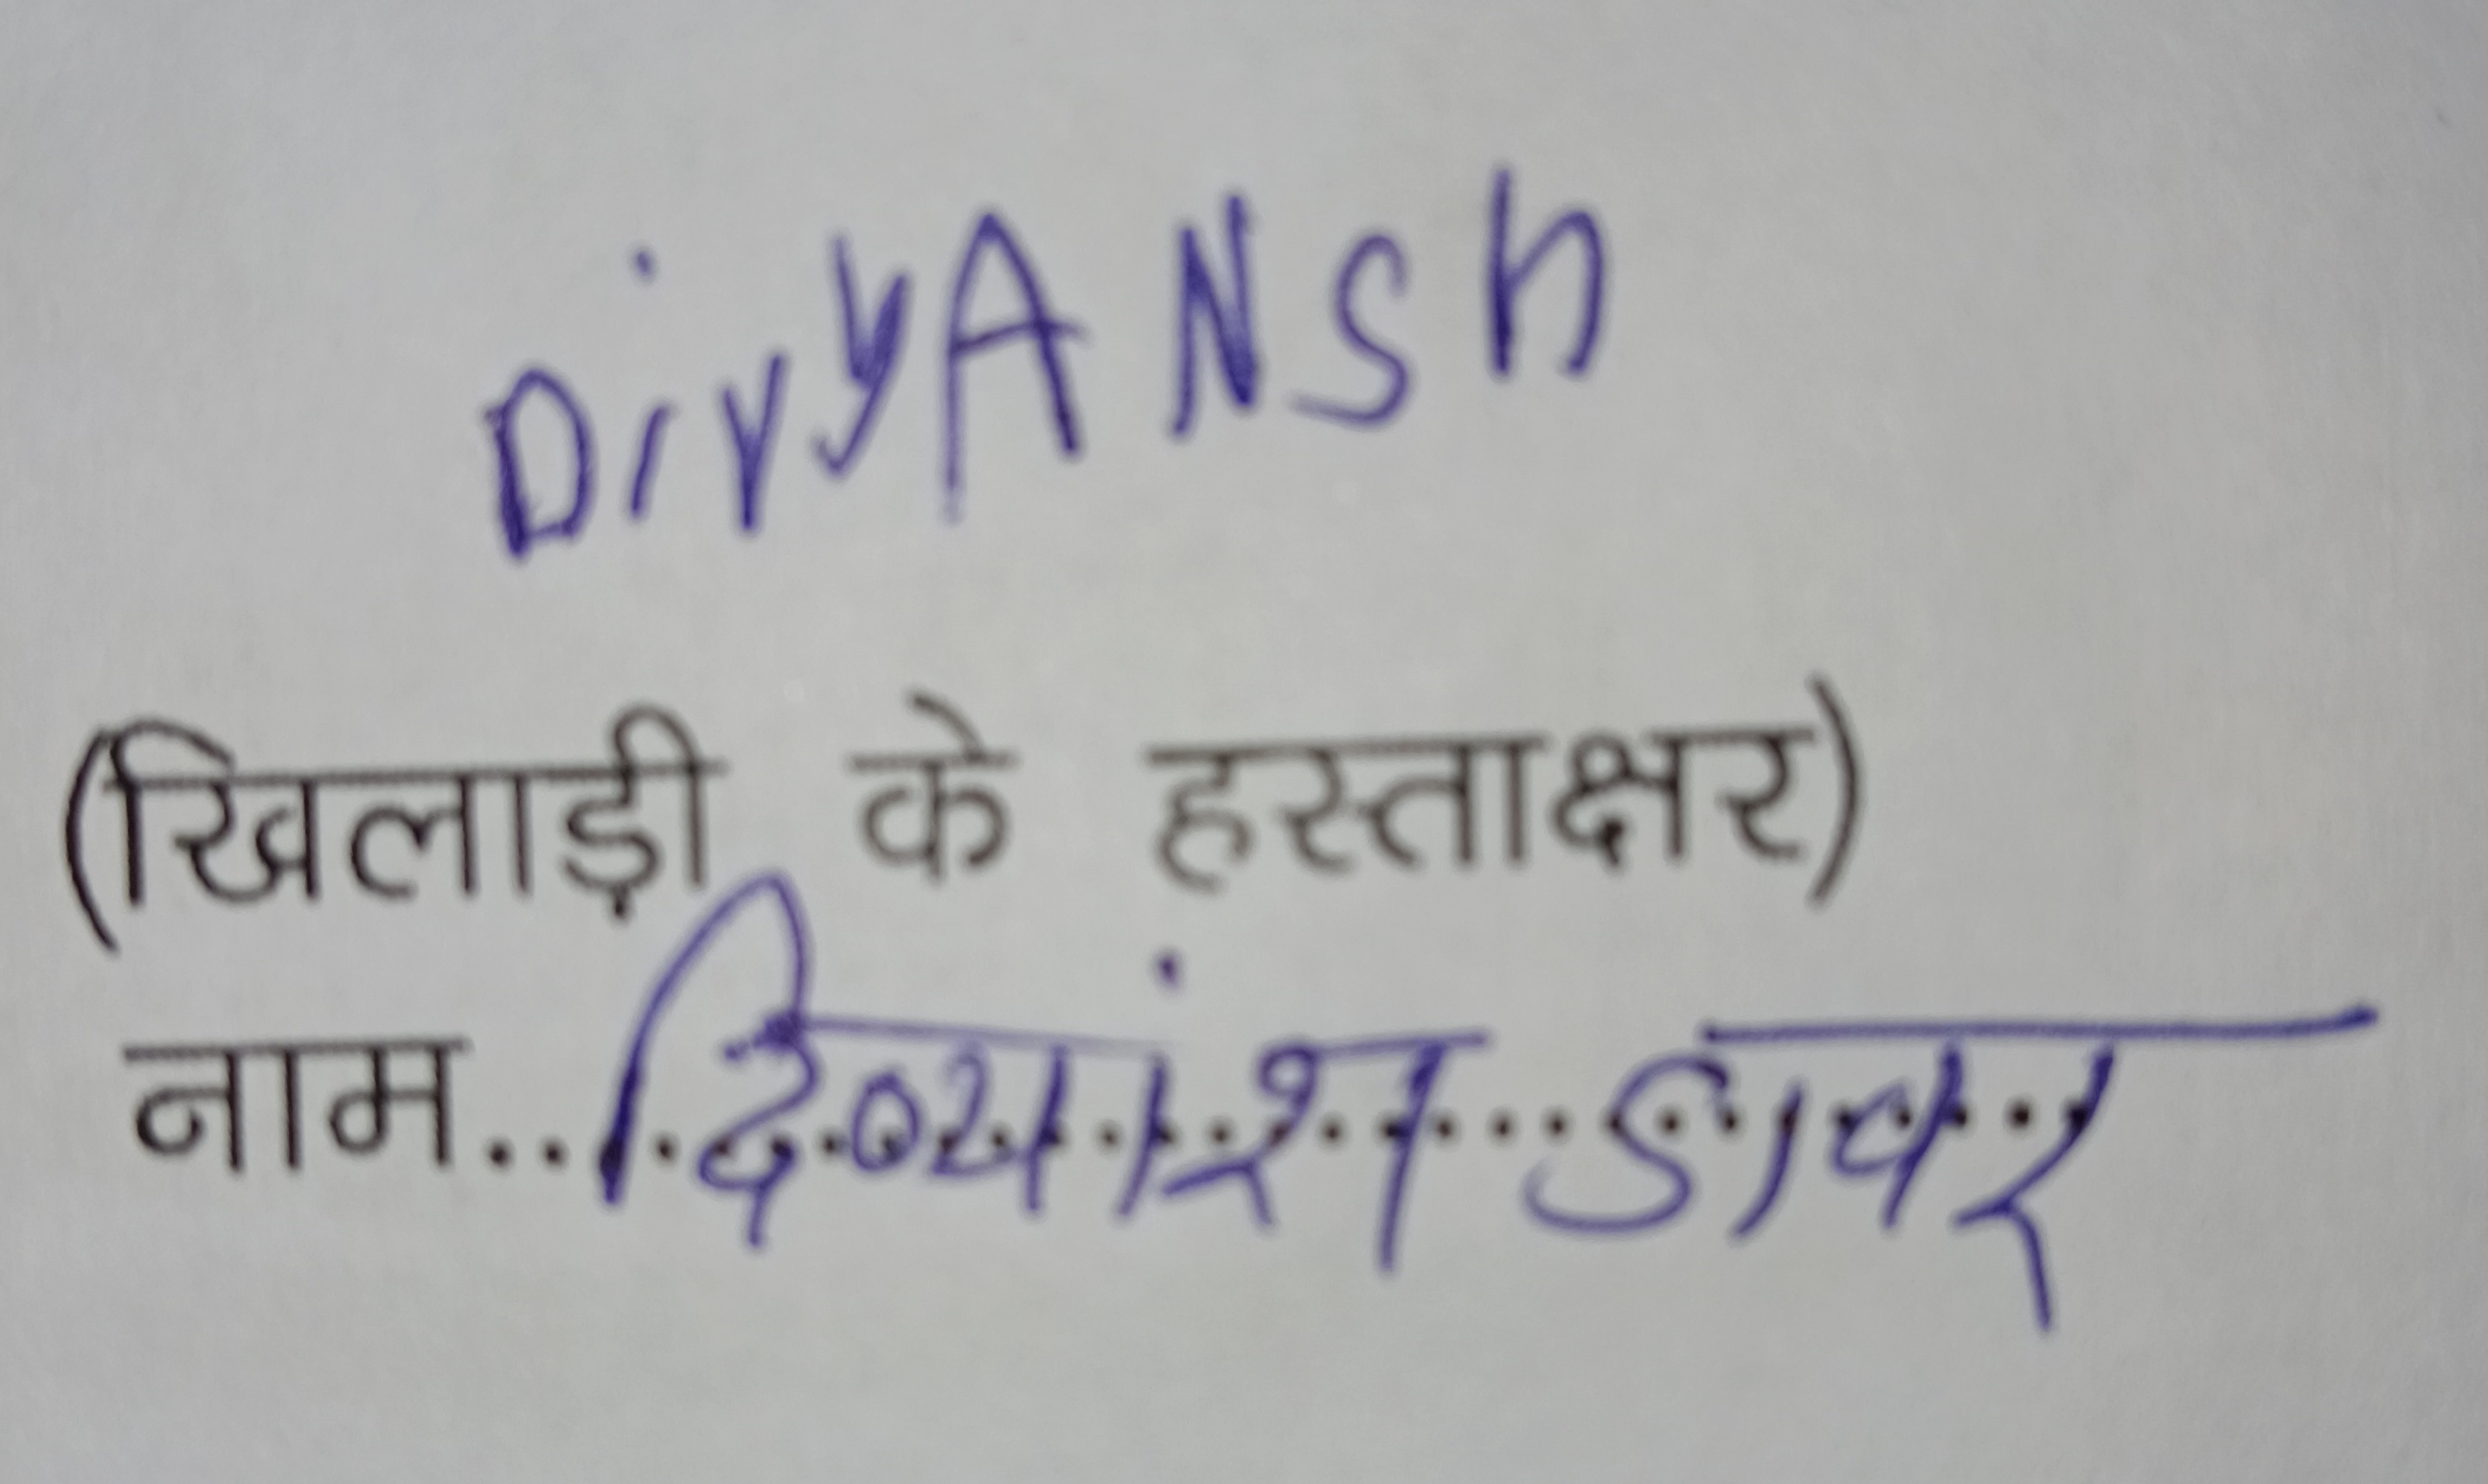 DivyANsh
(खिलाड़ी के हस्ताक्षर)
नाम.. दिव्यांश डावर